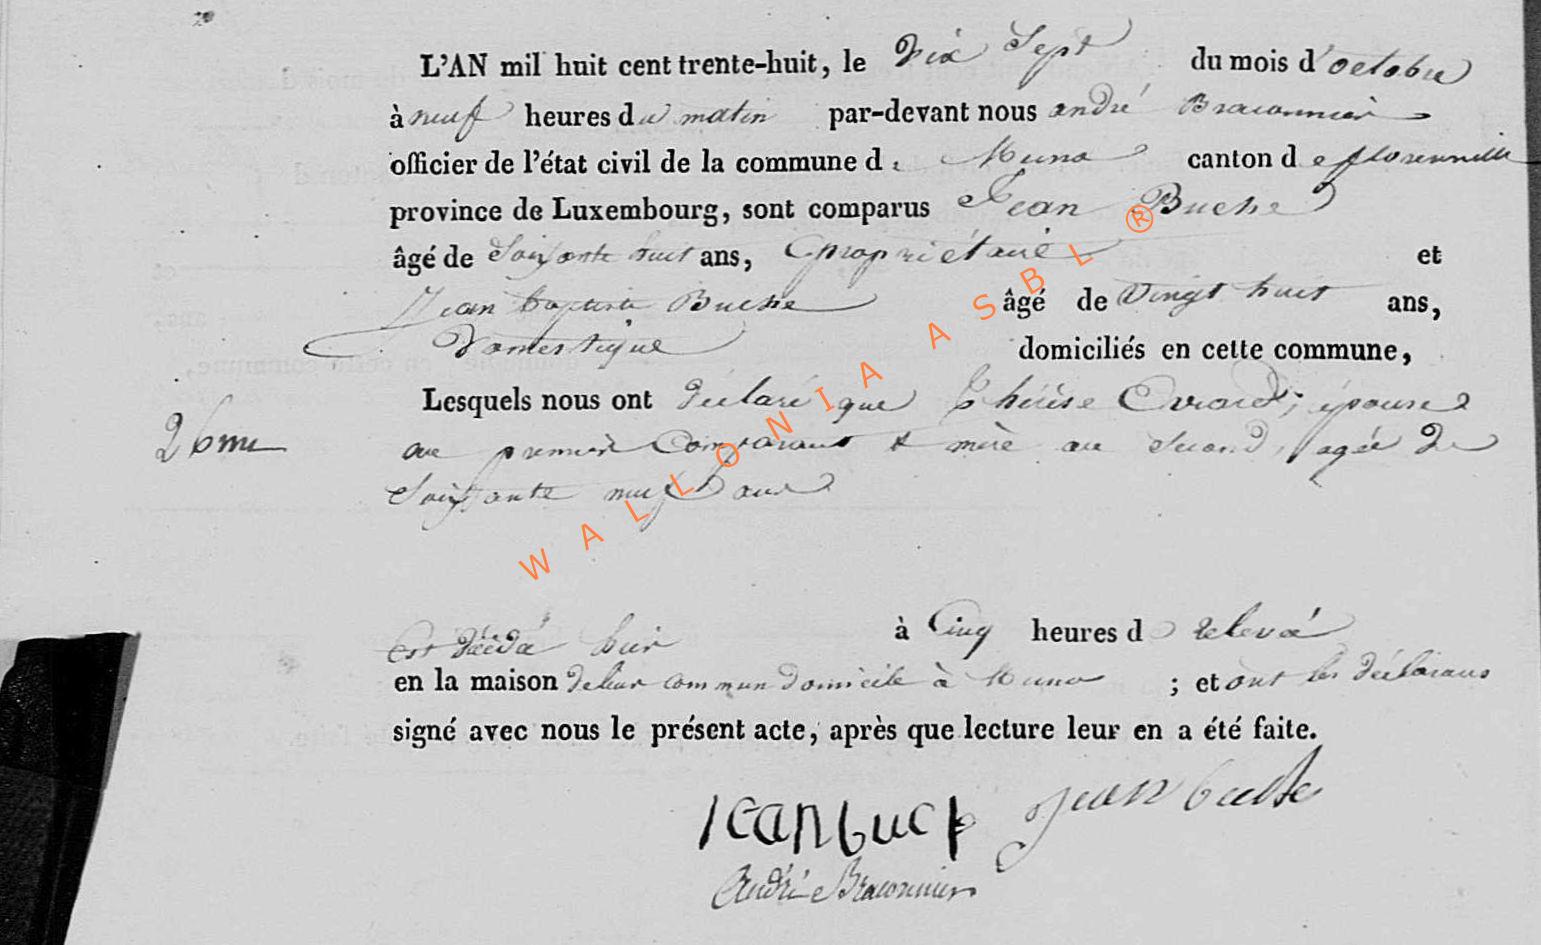 L'AN mil huit cent trente-huit, le Dix Sept du mois d'octobre
à neuf heures du matin par-devant nous andré Braconnier
officier de l'état civil de la commune d. Muno canton de florenville
province de Luxembourg, sont comparus Jean Buche
âgé de Soixante huit ans, propriétaire et
Jean baptiste Buche âgé de Vingt huit ans,
Domestique domiciliés en cette commune,
Lesquels nous ont déclaré que Thérèse Evrard, épouse
26me
au premier Comparant & mère au Second, agée de
Soixante neuf ans
Est décédé hier à Cinq heures de relevé
en la maison de leur commun domicile à Muno ; et ont les déclarans
signé avec nous le présent acte, après que lecture leur en a été faite.
Jean buch Jean buche
André Braconnier
WALLONIA ASBL ®